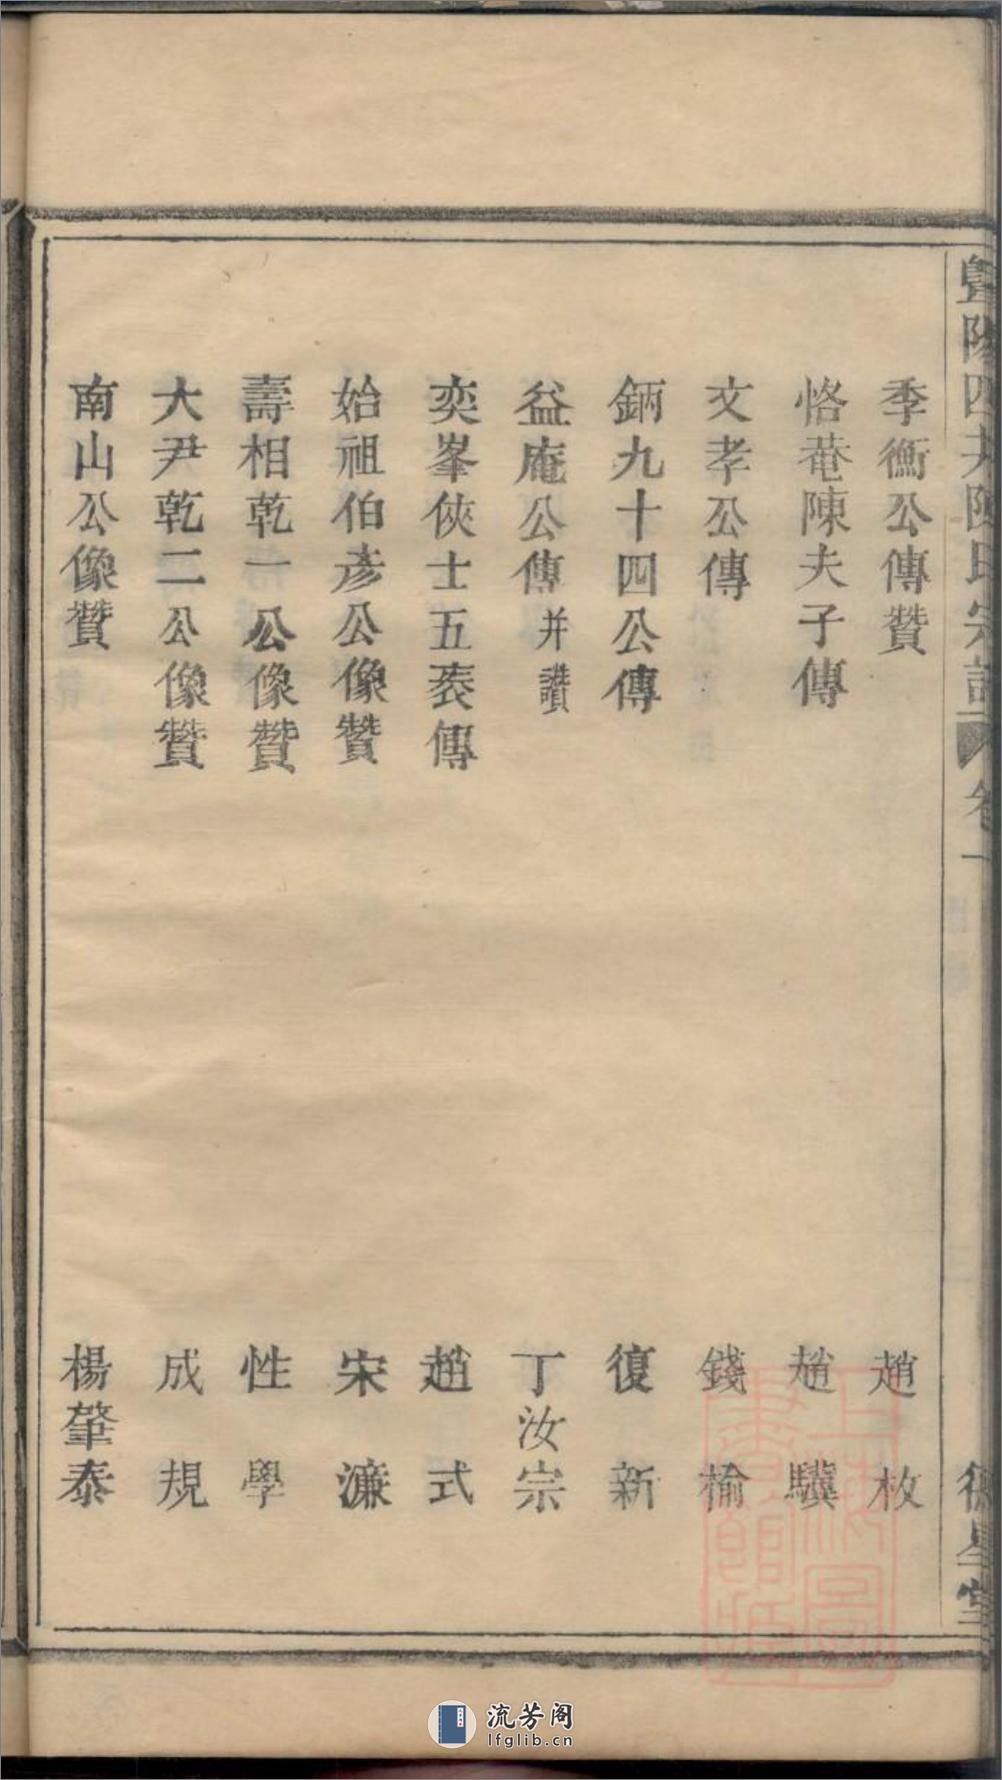 暨陽四大陳氏宗譜 卷一 德星堂
季衡公傳贊 趙枚
恪菴陳夫子傳 趙驥
文孝公傳 錢榆
鈵九十四公傳 復新
益庵公傳并讚 丁汝宗
奕峯俠士五袠傳 趙式
始祖伯彥公像贊 宋濂
壽相乾一公像贊 性學
大尹乾二公像贊 成規
南山公像贊 楊肇泰
上海圖書館藏
流芳阁
lfglib.cn